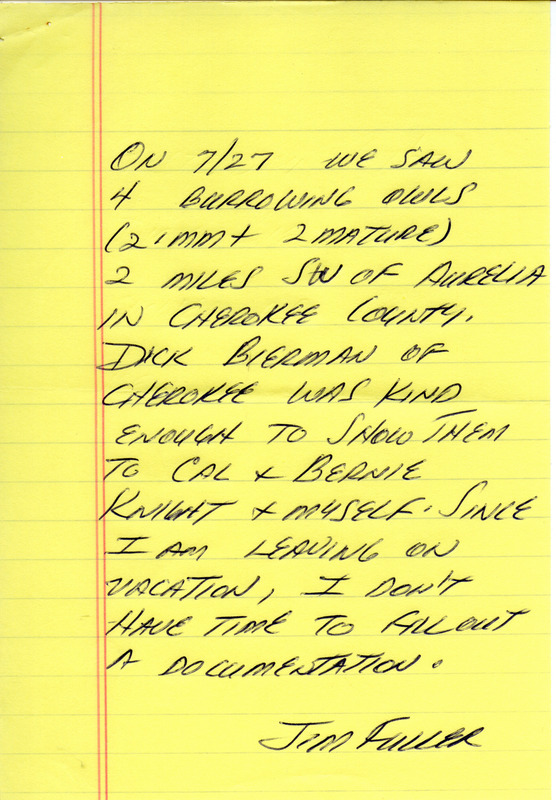 ON 7/27 WE SAW
4 BURROWING OWLS
(2 IMM + 2 MATURE)
2 MILES SW OF AURELIA
IN CHEROKEE COUNTY.
DICK BIERMAN OF
CHEROKEE WAS KIND
ENOUGH TO SHOW THEM
TO CAL + BERNIE
KNIGHT + MYSELF. SINCE
I AM LEAVING ON
VACATION, I DON'T
HAVE TIME TO FILL OUT
A DOCUMENTATION.
JIM FULLER